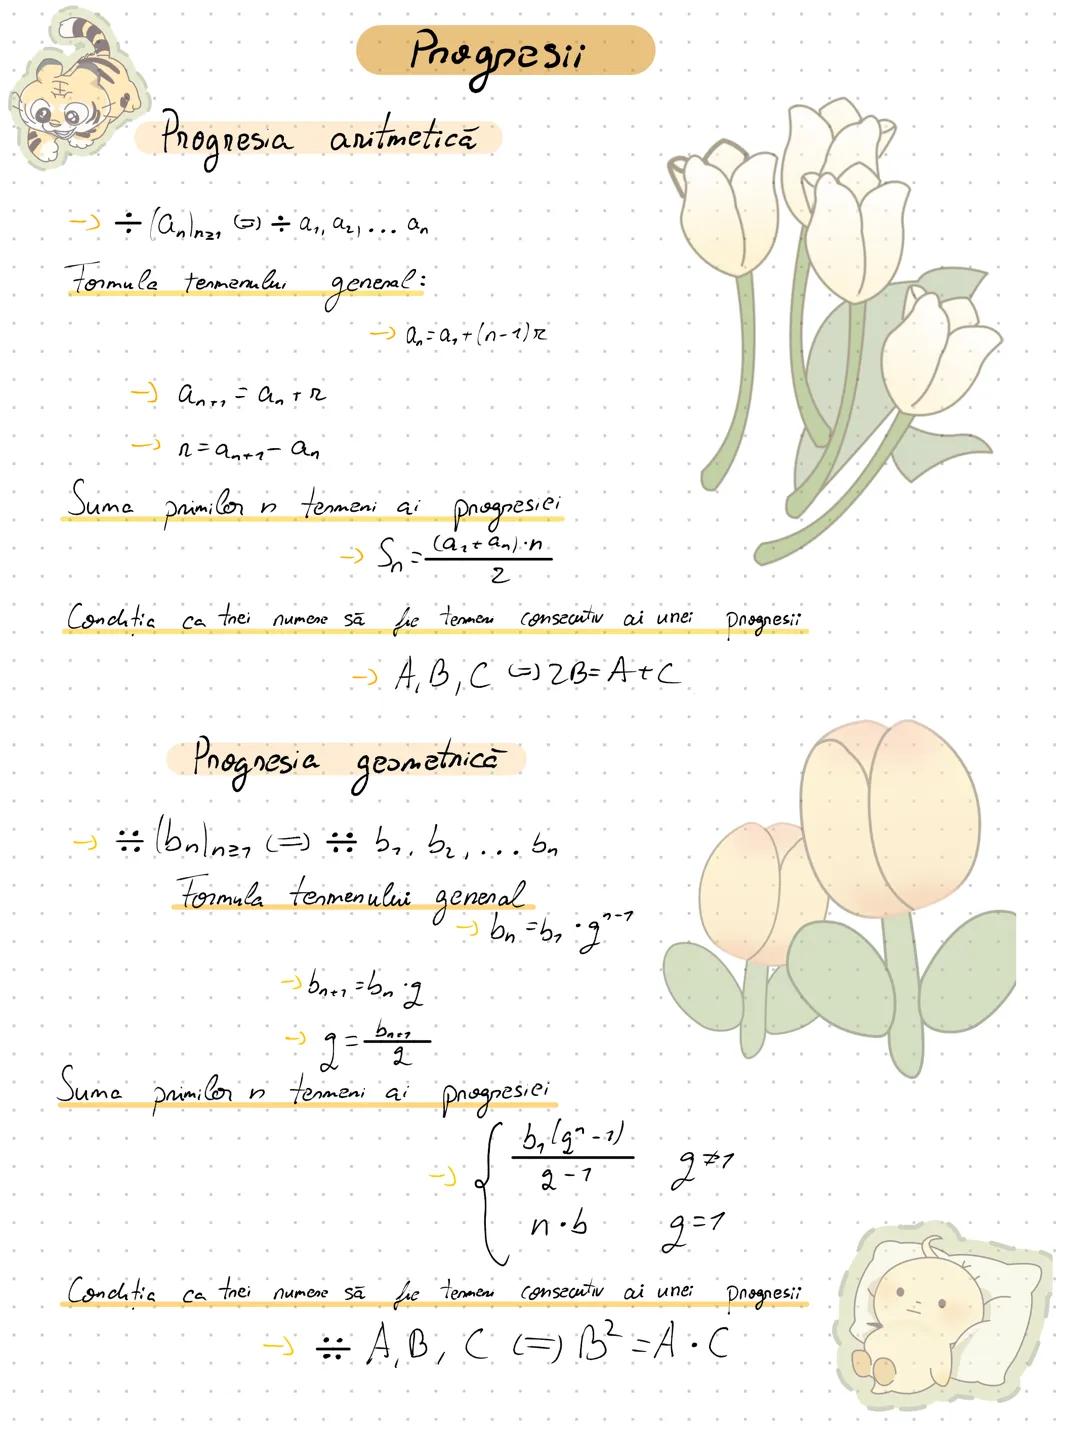 Progresii
Progresia aritmetică
→ ÷ (aₙ)ₙ≥₁ (=) ÷ a₁, a₂, ... aₙ
Formula termenului general:
→ aₙ = a₁ + (n-1)r
→ aₙ₊₁ = aₙ + r
→ r = aₙ₊₁ - aₙ
Suma primilor n termeni ai progresiei
→ Sₙ = (a₁ + aₙ)·n / 2
Condiția ca trei numere să fie termeni consecutiv ai unei progresii
→ A, B, C (=) 2B = A + C
Progresia geometrică
→ ∺ (bₙ)ₙ≥₁ (=) ∺ b₁, b₂, ... bₙ
Formula termenului general
→ bₙ = b₁ · qⁿ⁻¹
→ bₙ₊₁ = bₙ · q
→ q = bₙ₊₁ / q
Suma primilor n termeni ai progresiei
→ { b₁(qⁿ - 1) / q - 1 q ≠ 1
n · b q = 1
Condiția ca trei numere să fie termeni consecutiv ai unei progresii
→ ∺ A, B, C (=) B² = A · C